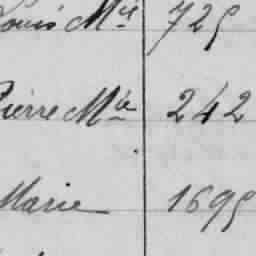 Louis Mie 725
Pierre Mie 242
Marie 1695